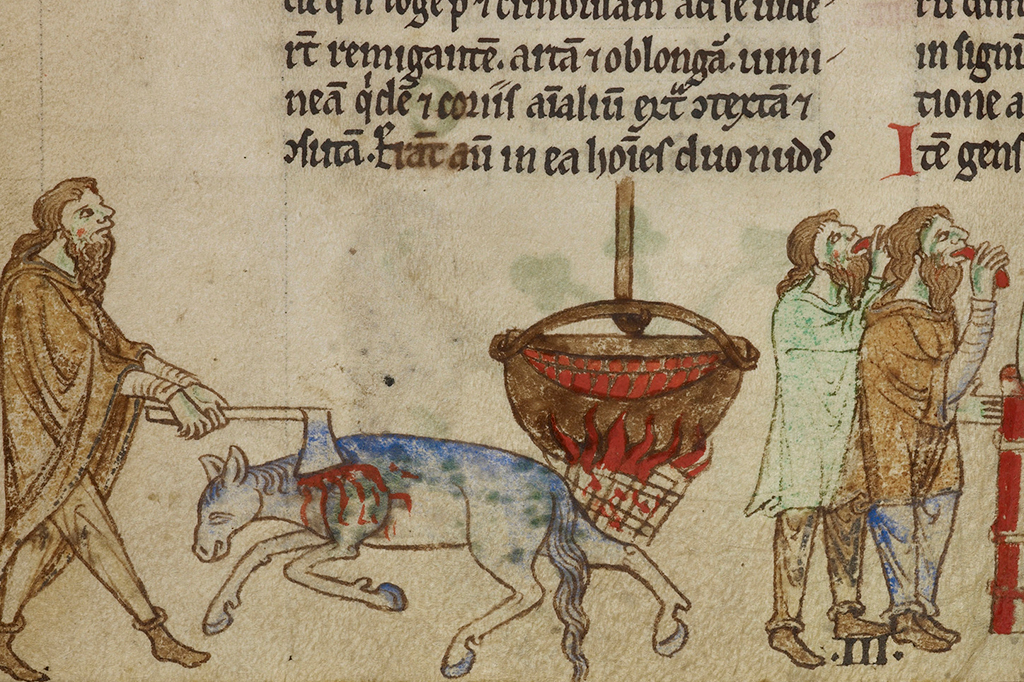 rt̄ remigantē. artā ⁊ oblongā. uimi
neā q̇dē ⁊ coriis aīaliū ext̄ ↄtextā ⁊
ↄsutā. Erāt aū in ea hoīes duo nudis
in signū
tione a
Itē gens
.III.